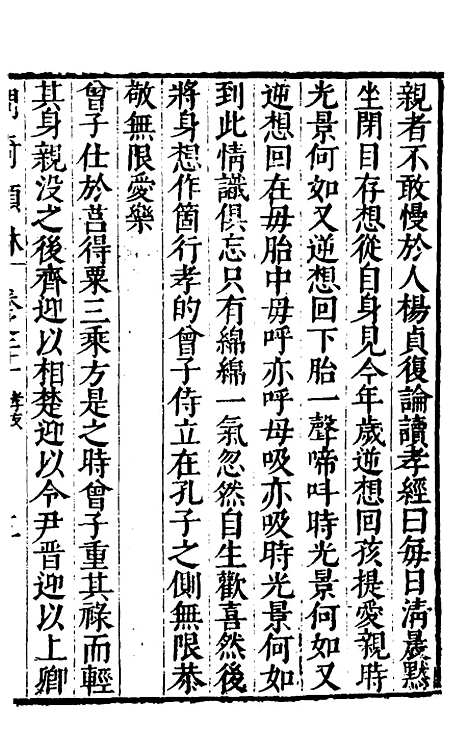 親者不敢慢於人楊貞復論讀孝經曰每日清晨默
坐閉目存想從自身見今年歲逆想回孩提愛親時
光景何如又逆想回下胎一聲啼呌時光景何如又
逆想回在毋胎中毋呼亦呼母吸亦吸時光景何如
到此情識俱忘只有綿綿一氣忽然自生歡喜然後
將身想作箇行孝的曾子侍立在孔子之側無限恭
敬無限愛樂
曾子仕於莒得粟三乘方是之時曾子重其祿而輕
其身親没之後齊迎以相楚迎以令尹晋迎以上卿